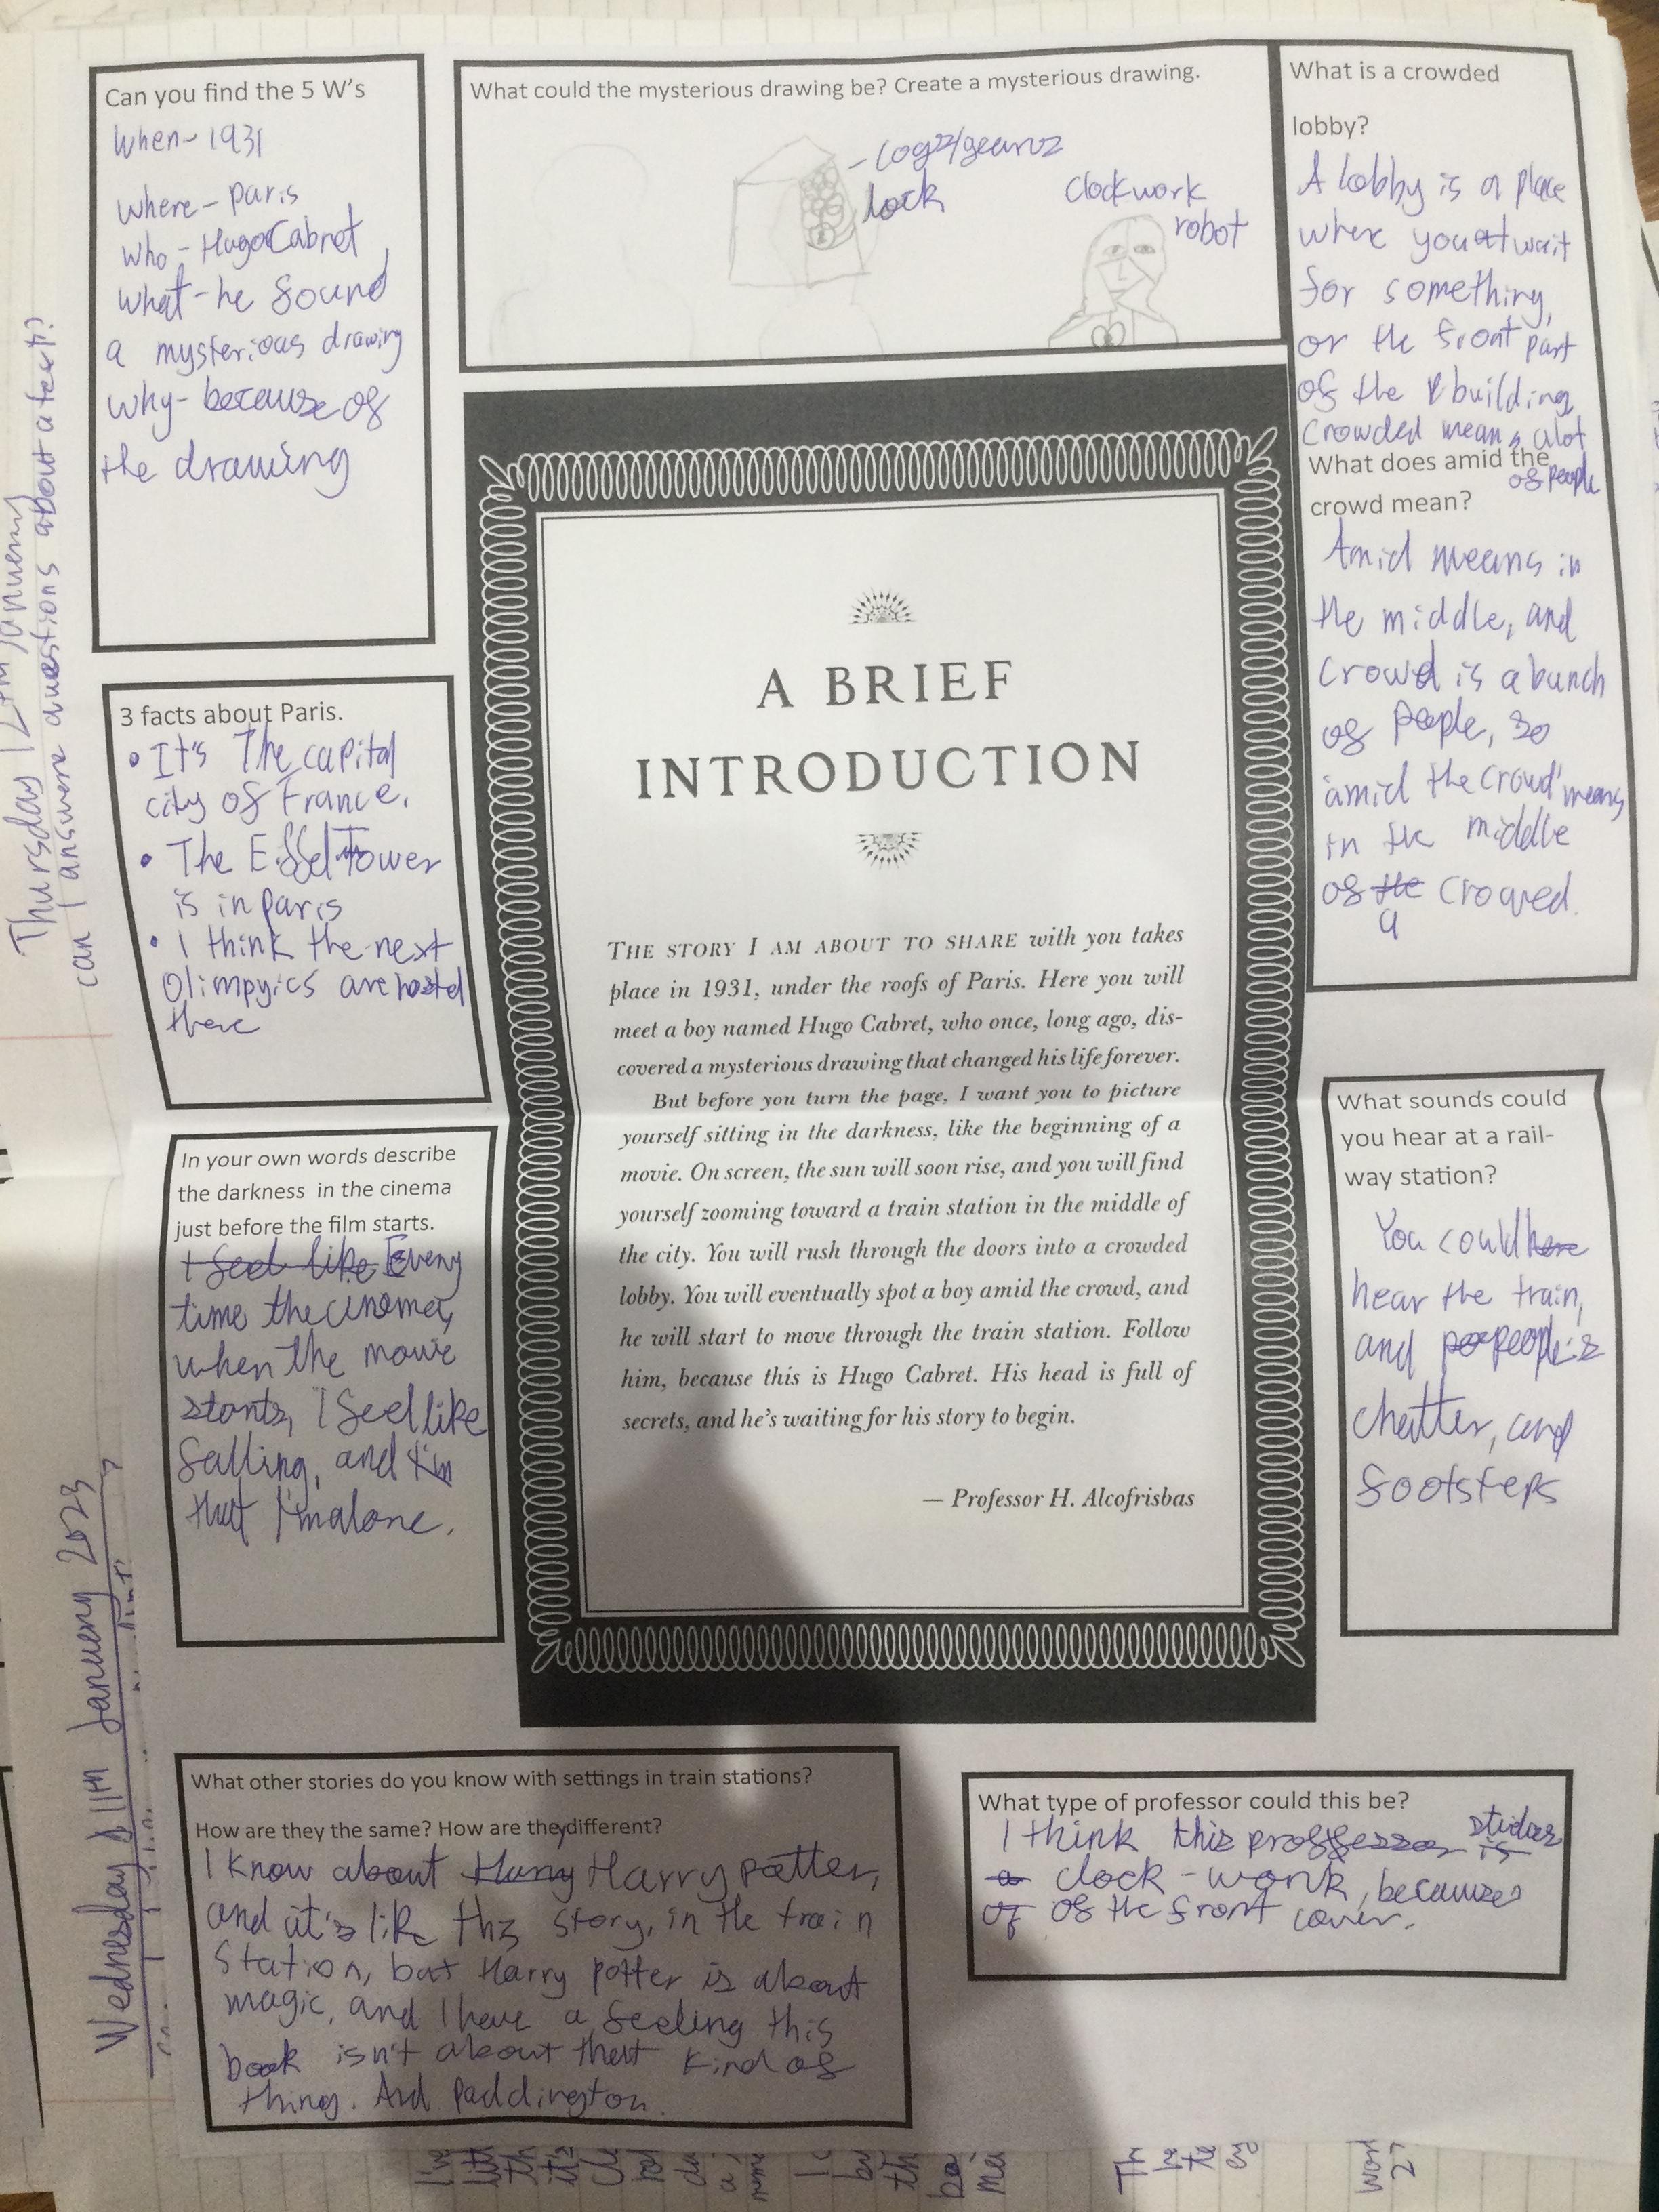 Can you find the 5 W's
When- 1931
where- paris
who - Hugo Cabret
what- he found
a mysterious drawing
why- because of
the drawing
What could the mysterious drawing be? Create a mysterious drawing.
- cogz/gearz
lock
Clockwork
robot
What is a crowded
lobby?
A lobby is a place
where you wait
for something,
or the front part
of the building.
Crowded means alot
of people
What does amid the
crowd mean?
Amid means in
the middle, and
crowd is a bunch
of people, so
'amid the crowd' means
in the middle
of the a crowed.
3 facts about Paris.
• It's The capital
city of France.
• The Eiffel Tower
is in paris
• I think the next
Olimpyics are hosted
there
In your own words describe
the darkness in the cinema
just before the film starts.
I feel like Every
time the cinema,
when the movie
starts, I feel like
falling, and
that I'm alone.
A BRIEF
INTRODUCTION
THE STORY I AM ABOUT TO SHARE with you takes
place in 1931, under the roofs of Paris. Here you will
meet a boy named Hugo Cabret, who once, long ago, dis-
covered a mysterious drawing that changed his life forever.
But before you turn the page, I want you to picture
yourself sitting in the darkness, like the beginning of a
movie. On screen, the sun will soon rise, and you will find
yourself zooming toward a train station in the middle of
the city. You will rush through the doors into a crowded
lobby. You will eventually spot a boy amid the crowd, and
he will start to move through the train station. Follow
him, because this is Hugo Cabret. His head is full of
secrets, and he's waiting for his story to begin.
— Professor H. Alcofrisbas
What sounds could
you hear at a rail-
way station?
You could here
hear the train,
and people's
chatter, and
footsteps
What other stories do you know with settings in train stations?
How are they the same? How are they different?
I know about Harry Harry potter,
and it's like this story, in the train
station, but Harry potter is about
magic, and I have a feeling this
book isn't about that kind of
thing. And Paddington.
What type of professor could this be?
I think this proffessor is studies
a clock-work, because
of of the front cover.
Thursday 12th January
can I answere questions about a text?
Wednesday 11th January 2023